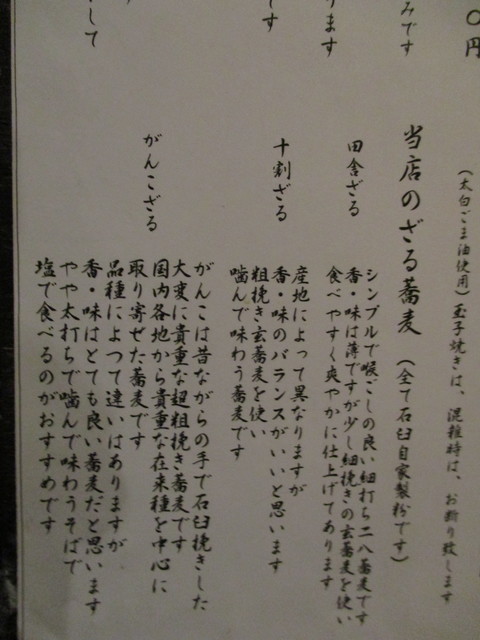 〇円
みです
ります
です
して
(太白ごま油使用) 玉子焼きは、混雑時は、お断り致します
当店のざる蕎麦 (全て石臼自家製粉です)
田舎ざる
シンプルで喉ごしの良い細打ち二八蕎麦です
香・味は薄ですが少し細挽きの玄蕎麦を使い
食べやすく爽やかに仕上げてあります
十割ざる
産地によって異なりますが
香・味のバランスがいいと思います
粗挽き玄蕎麦を使い
噛んで味わう蕎麦です
がんこざる
がんこは昔ながらの手で石臼挽きした
大変に貴重な超粗挽き蕎麦です
国内各地から貴重な在来種を中心に
取り寄せた蕎麦です
品種によって違いはありますが
香・味はとても良い蕎麦だと思います
やや太打ちで噛んで味わうそばで
塩で食べるのがおすすめです